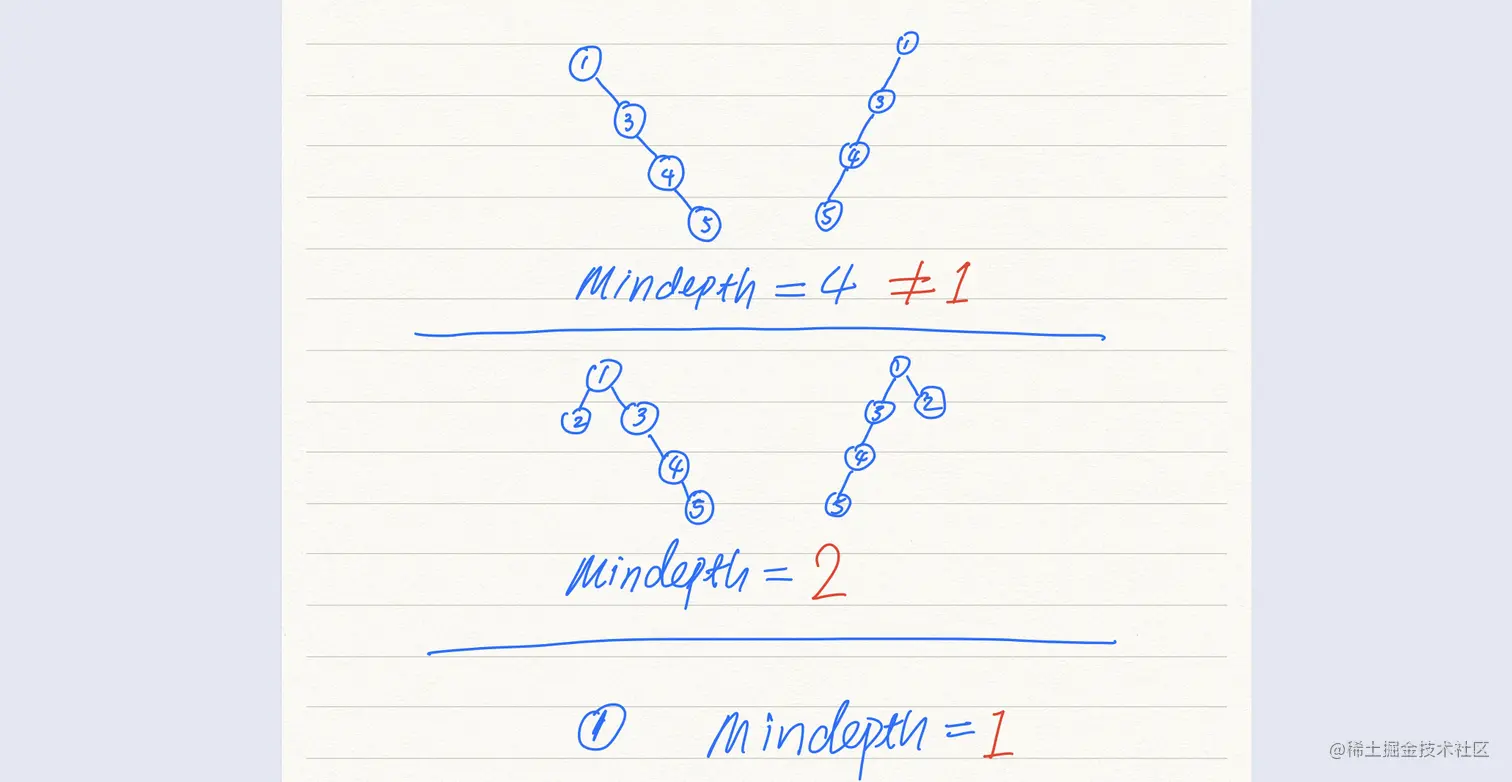 1 1
3 3
4 4
5 5
Mindepth = 4 ≠ 1
1 1
2 3 3 2
4 4
5 5
Mindepth = 2
1 Mindepth = 1
@稀土掘金技术社区